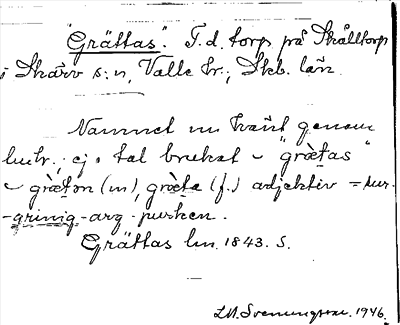 "Grättas". F. d. torp på Skålltorp
i Skärv s:n, Valle hr., Skb. län.
Namnet nu känt genom
lmtr., ej i tal brukat ~ "grætas"
~ græton (m), græta (f.) adjektiv = sur-
-grinig-arg-pursken.
Grättas lm. 1843. S.
LM. Svenungsson. 1946.